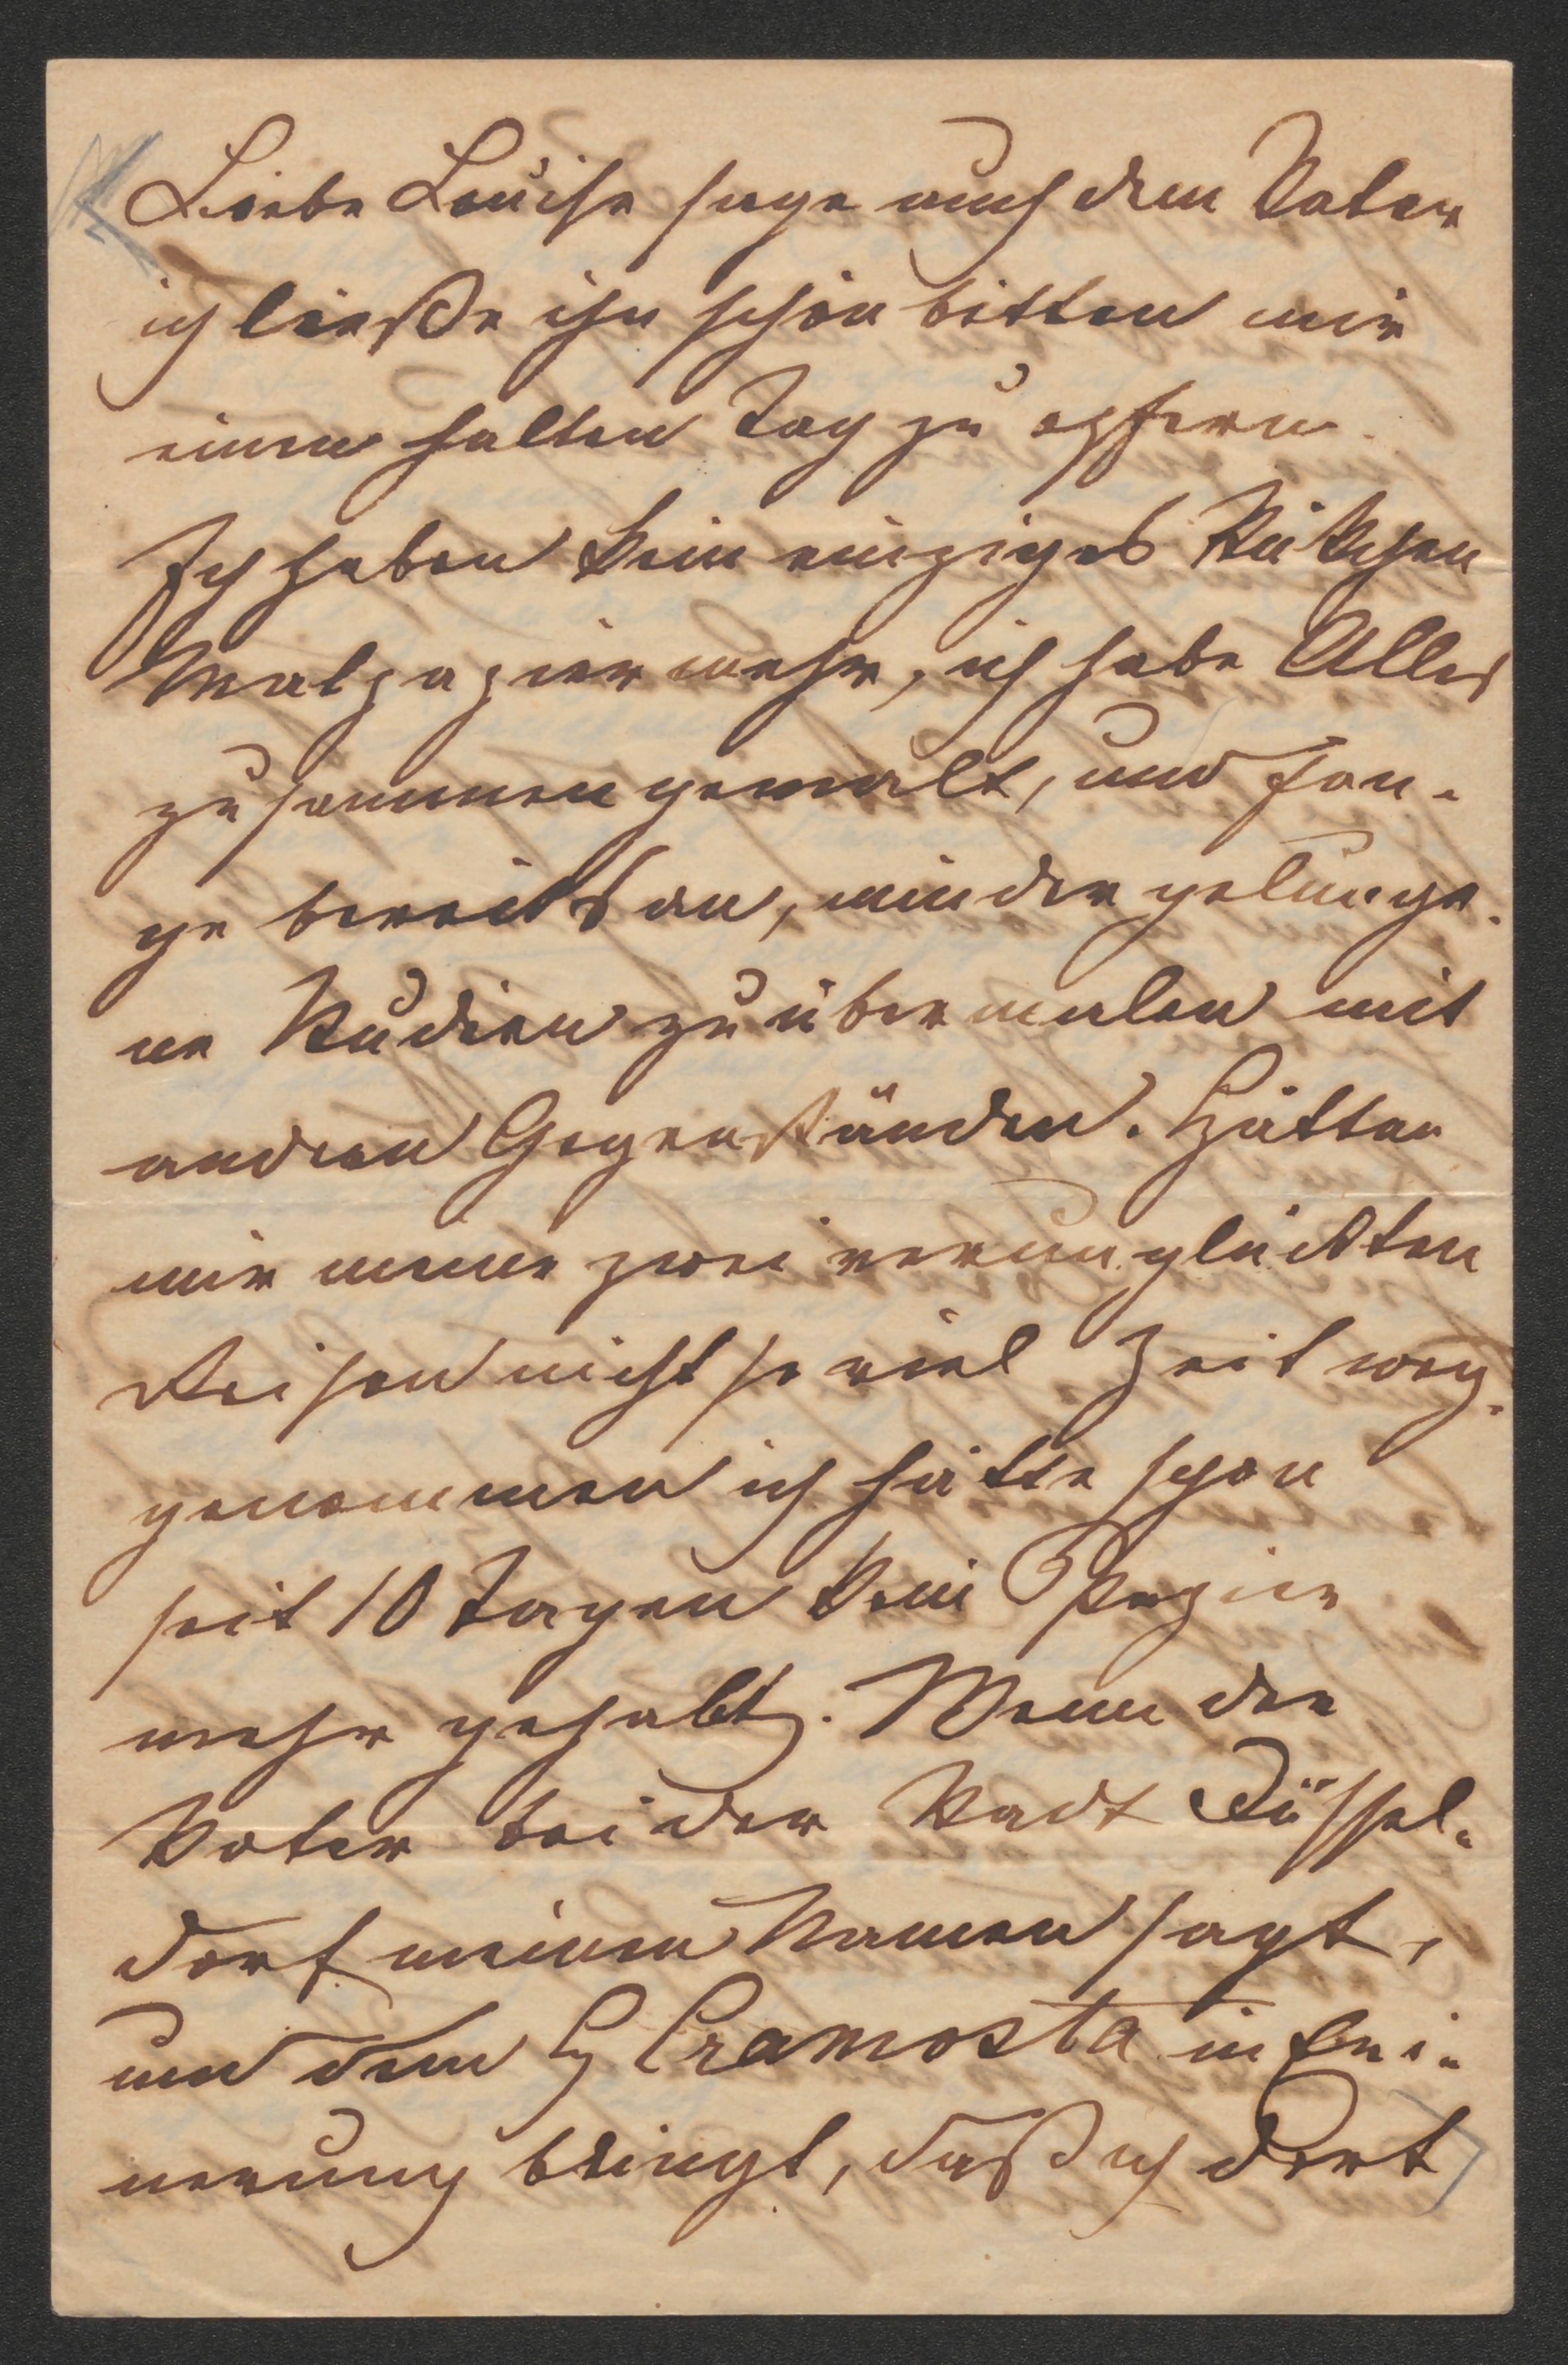 Liebe Louise sage auch dem Vater
ich ließe ihn schön bitten mir
einen halben Tag zu opfern.
Ich haben kein einziges Stückchen
Malpapier mehr, ich habe Alles
zusammengemalt, und fan-
ge bereits an, minder gelunge-
ne Studien zu übermalen mit
andren Gegenständen. Hätten
mir meine zwei verunglückten
Reisen nicht so viel Zeit weg-
genommen ich hätte schon
seit 10 Tagen kein Papier
mehr gehabt. Wenn der
Vater bei der Stadt Düssel-
dorf meinen Namen sagt,
und dem H Cramosta in Eri-
nerung bringt, daß ich dort